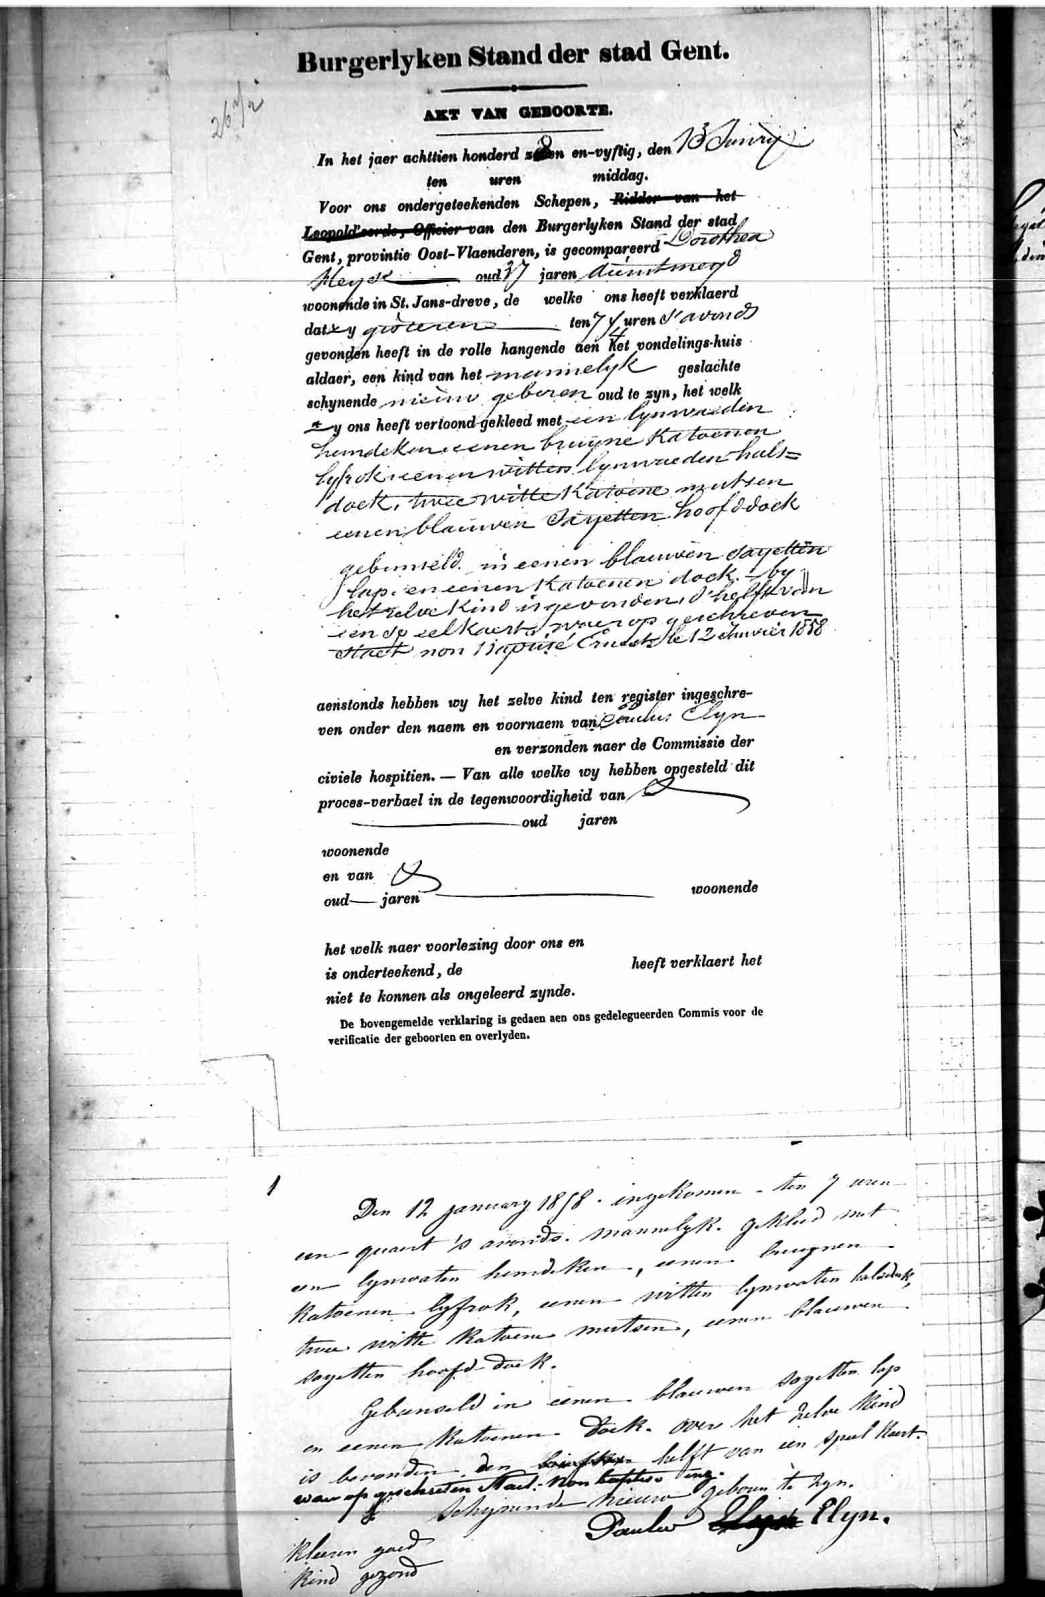 Burgerlyken Stand der stad Gent.
26 1/2
AKT VAN GEBOORTE.
In het jaer achttien honderd 8 en-vyftig, den 13 January
ten uren middag.
Voor ons ondergeteekenden Schepen, Ridder van het
Leopold'sorde, Officier van den Burgerlyken Stand der stad
Gent, provintie Oost-Vlaenderen, is gecompareerd Dorothea
Heyse oud 37 jaren dienstmeyd
woonende in St. Jans-dreve, de welke ons heeft verklaerd
dat zy gisteren ten 7 1/4 uren s'avonds
gevonden heeft in de rolle hangende aen het vondelings-huis
aldaer, een kind van het mannelyk geslachte
schynende nieuw geboren oud te zyn, het welk
zy ons heeft vertoond gekleed met een lynwaeden
hemdeken eenen bruyne katoenen
lyfrok, eenen witten lynwaeden hals=
doek, twee witte katoene mutsen
eenen blauwen sayetten hoofddoek
gebunseld in eenen blauwen sayetten
lap en eenen katoenen doek. - by
het zelve kind is gevonden, d'helft van
een speelkaert, waer op geschreven
staet non Baptisé Ernest le 12 Janvier 1858
aenstonds hebben wy het zelve kind ten register ingeschre-
ven onder den naem en voornaem van Paulus Elyn
en verzonden naer de Commissie der
civiele hospitien. — Van alle welke wy hebben opgesteld dit
proces-verbael in de tegenwoordigheid van
oud jaren
woonende
en van
oud jaren woonende
het welk naer voorlezing door ons en
is onderteekend, de heeft verklaert het
niet te konnen als ongeleerd zynde.
De bovengemelde verklaring is gedaen aen ons gedelegueerden Commis voor de
verificatie der geboorten en overlyden.
1
Den 12 january 1858. ingekomen ten 7 uren
een quaert 's avonds. mannelyk. gekleed met
een lynwaten hemdeken, eenen bruynen
katoenen lyfrok, eenen witten lynwaten halsdoek,
twee witte katoene mutsen, eenen blauwen
sayetten hoofd doek.
Gebunseld in eenen blauwen sayetten lap
en eenen katoenen doek. over het zelve kind
is bevonden den helft van een speel kaert.
waer op geschreven staet. Non baptise
schynende nieuw geboren te zyn.
Paulus Elyn.
kleeren goed
kind gezond